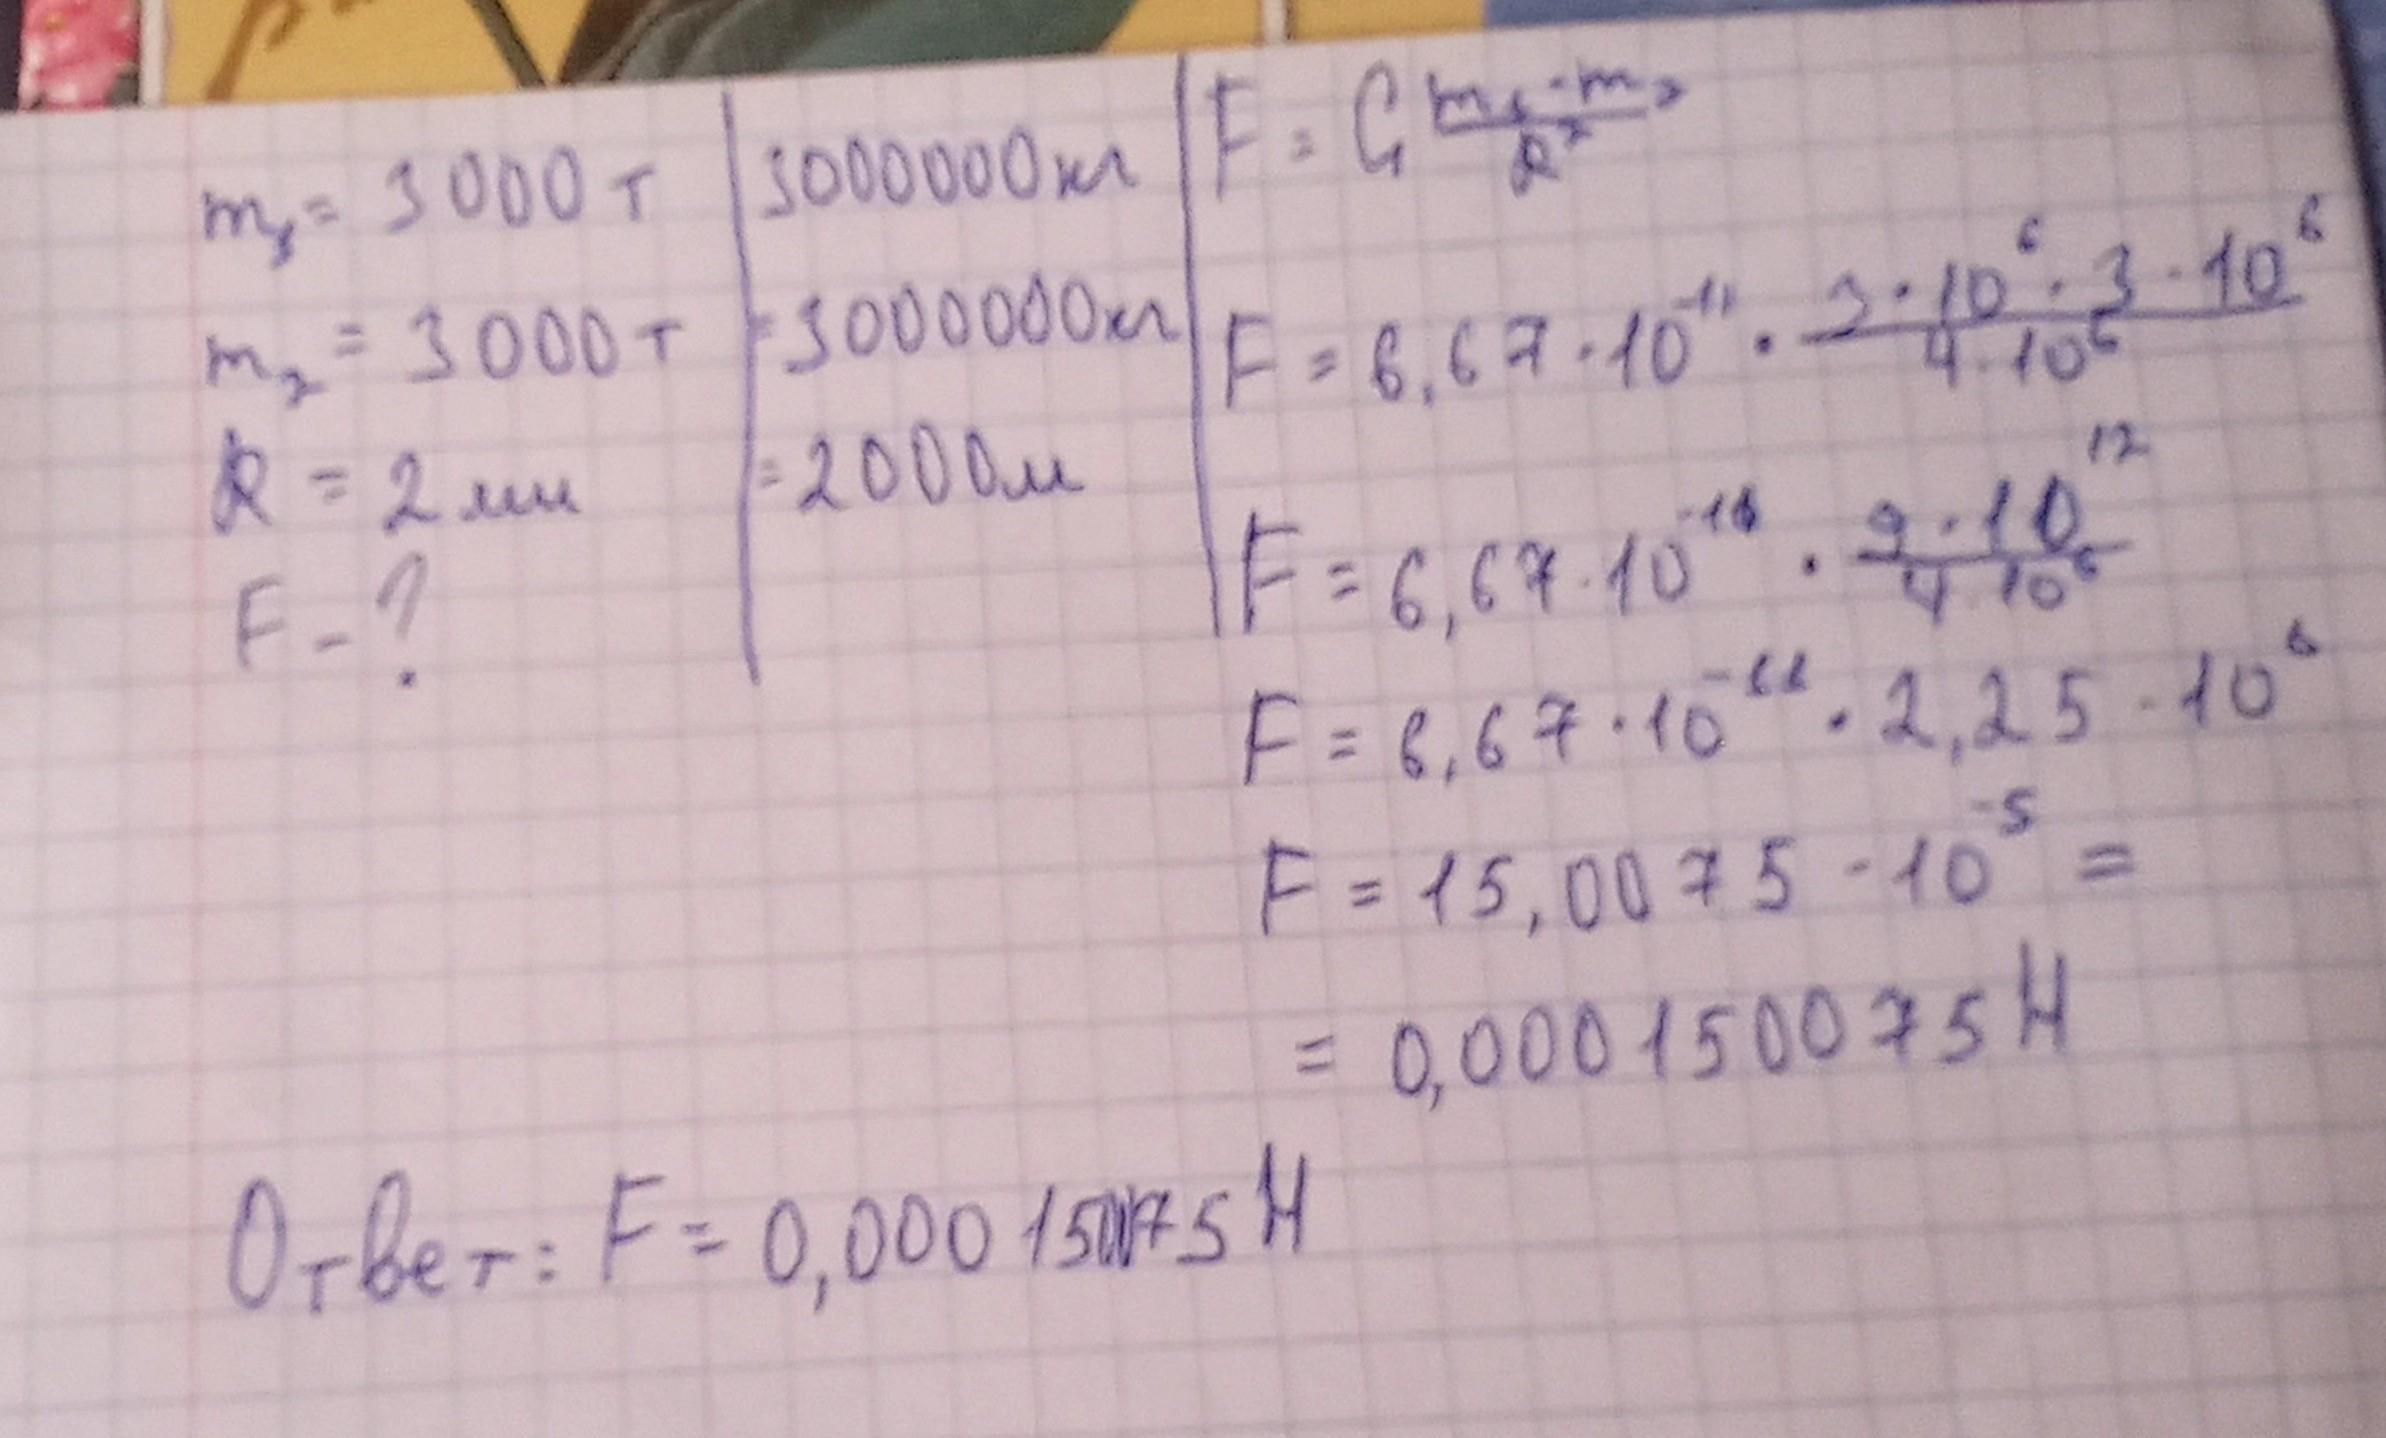 m₁ = 3000 т | 3000000 кг
m₂ = 3000 т | = 3000000 кг
R = 2 км | = 2000 м
F - ?
F = G (m₁ · m₂) / R²
F = 6,67 · 10⁻¹¹ · (3 · 10⁶ · 3 · 10⁶) / (4 · 10⁶)
F = 6,67 · 10⁻¹¹ · (9 · 10¹²) / (4 · 10⁶)
F = 6,67 · 10⁻¹¹ · 2,25 · 10⁶
F = 15,0075 · 10⁻⁵ =
= 0,000150075 Н
Ответ: F = 0,000150075 Н